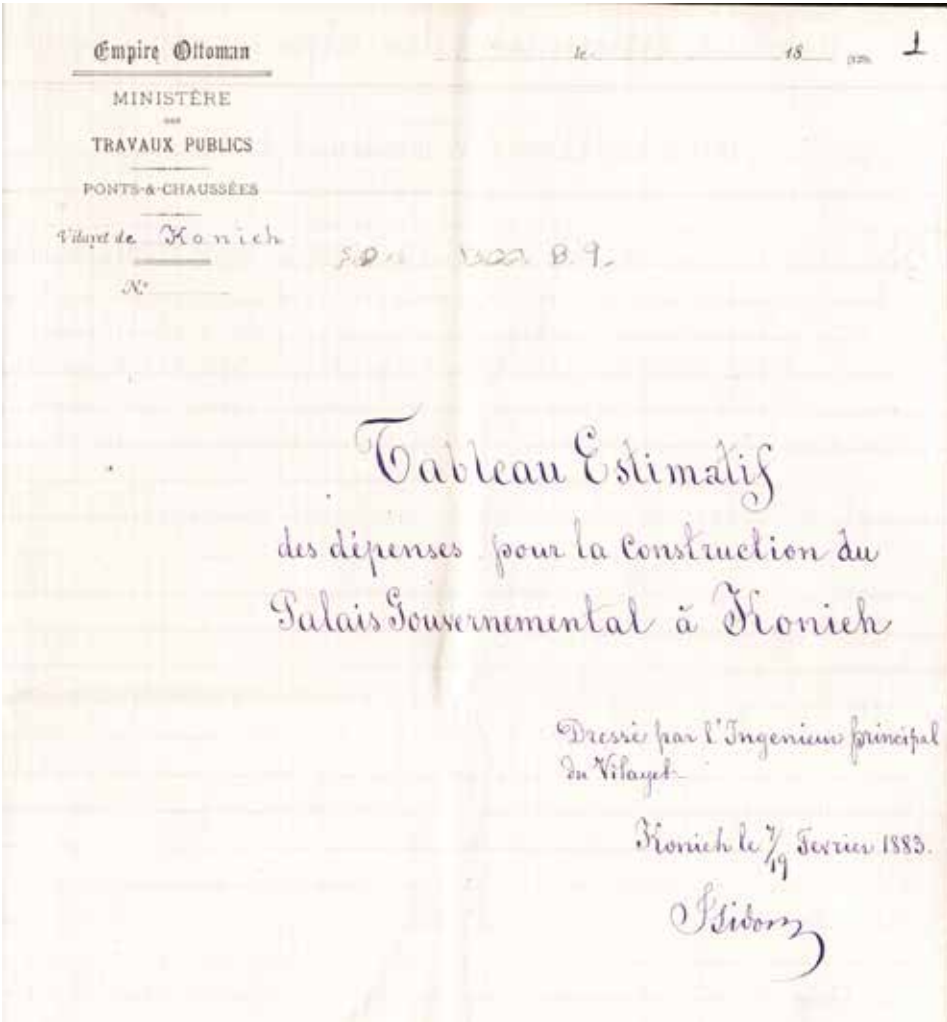 Empire Ottoman
le 18 1
MINISTÈRE
DES
TRAVAUX PUBLICS
PONTS-&-CHAUSSÉES
Vilayet de Konieh
B. 9.
N.º
Tableau Estimatif
des dépenses pour la Construction du
Palais Gouvernemental à Konieh
Dressé par l'Ingenieur principal
du Vilayet
Konieh le 7/19 Fevrier 1883.